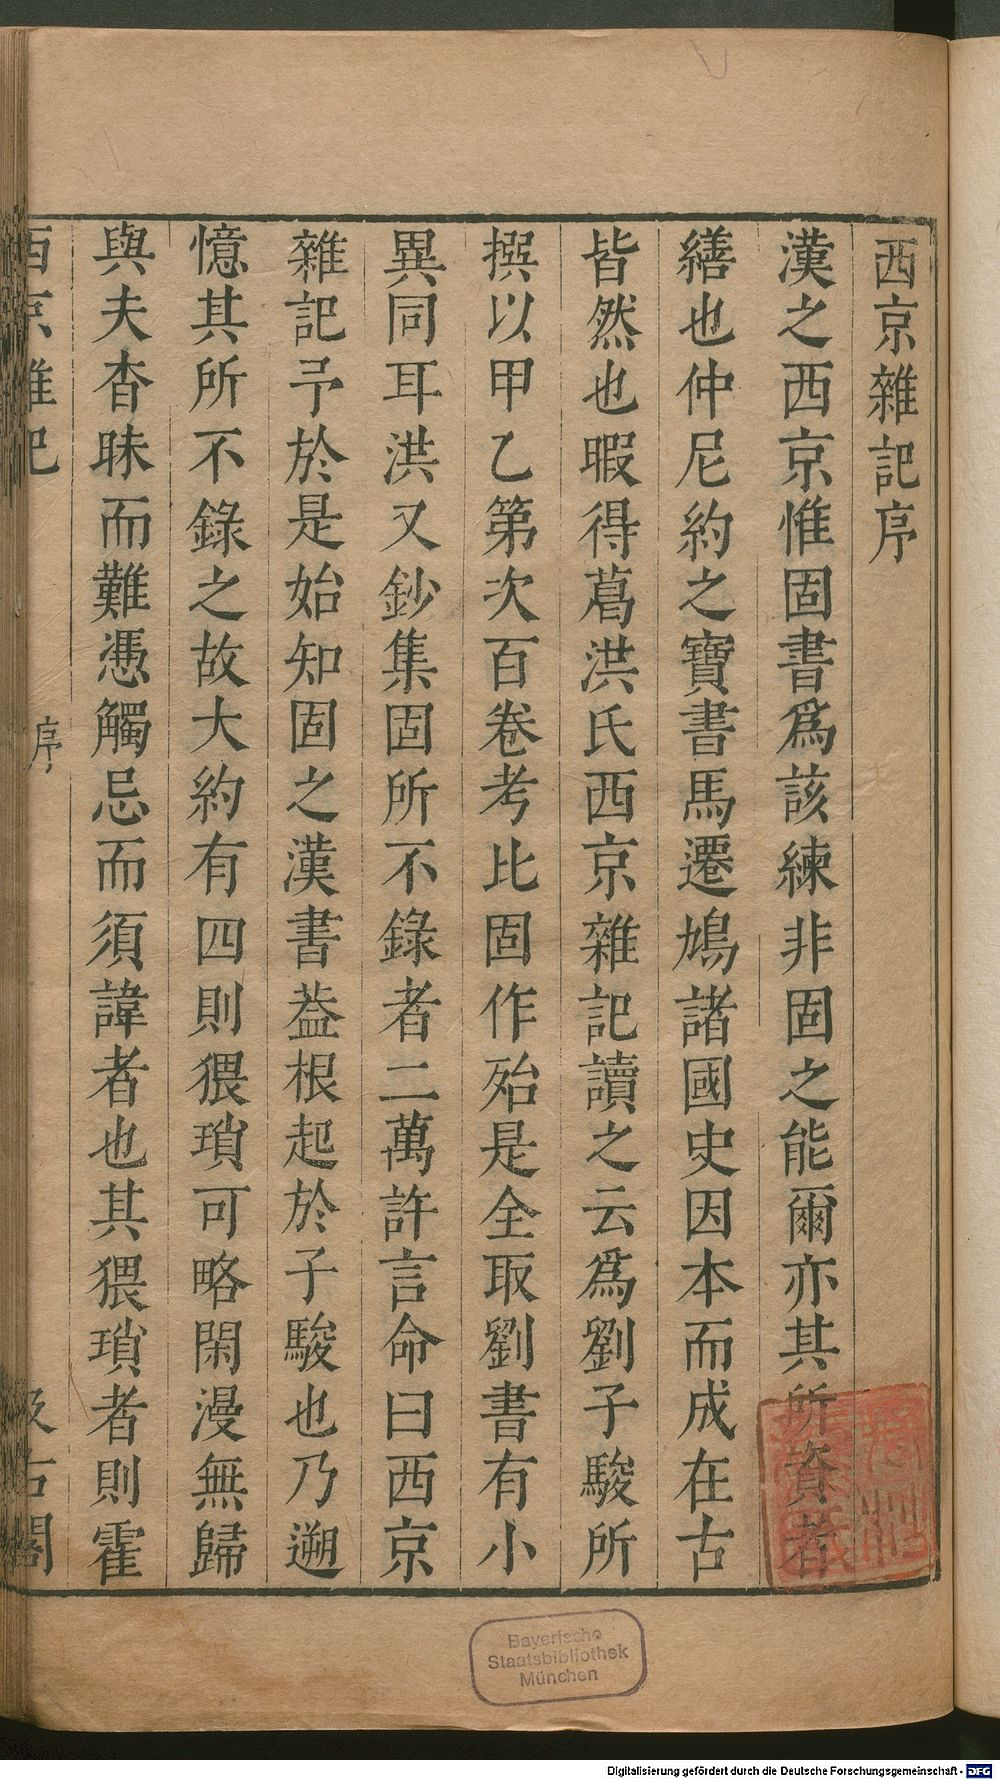 西京雜記序
漢之西京惟固書爲該練非固之能爾亦其所資者
繕也仲尼約之寶書馬遷鳩諸國史因本而成在古
皆然也暇得葛洪氏西京雜記讀之云爲劉子駿所
撰以甲乙第次百卷考比固作殆是全取劉書有小
異同耳洪又鈔集固所不錄者二萬許言命曰西京
雜記予於是始知固之漢書葢根起於子駿也乃遡
憶其所不錄之故大約有四則猥瑣可略閑漫無歸
與夫杳昧而難憑觸忌而須諱者也其猥瑣者則霍
西京雜記 序 汲古閣
Bayerische
Staatsbibliothek
München
Digitalisierung gefördert durch die Deutsche Forschungsgemeinschaft - DFG